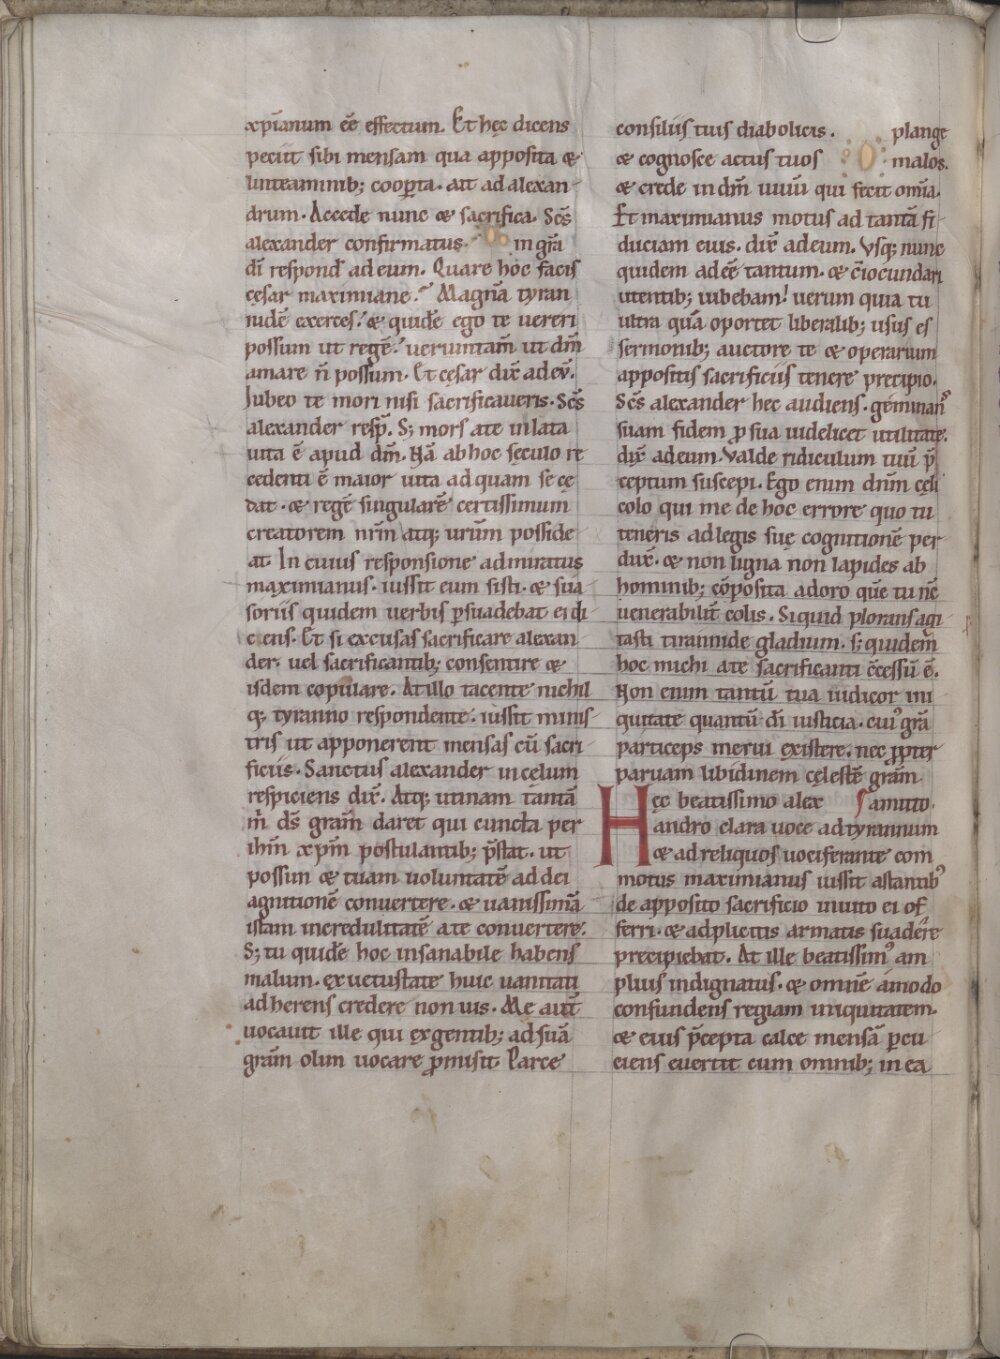 xp̄ianum ēe effectum. Et hęc dicens
peciit sibi mensam qua apposita &
linteaminib; coop̱ta. ait ad alexan
drum. Accede nunc & sacrifica. Sc̄s
alexander confirmatus in gr̄a
dī respond̄ ad eum. Quare hoc facis
cęsar maximiane? Magnā tyran
nidē exerces? & quidē ego te uereri
possum ut regē? uerumtam̄ ut dm̄
amare n̄ possum. Et cęsar dix̄ ad eū.
Iubeo te mori nisi sacrificaueris. Sc̄s
alexander resp̄. S; mors a te inlata
uita ē apud dm̄. Nā ab hoc sęculo re
cedenti ē maior uita ad quam se ce
dat. & regē singularē certissimum
creatorem nr̄m atq; urūm posside
at. In cuius responsione admiratus
maximianus. iussit eum sisti. & sua
soriis quidem uerbis p̱suadebat ei di
cens. Et si excusas sacrificare alexan
der. uel sacrificantib; consentire &
isdem copulare. At illo tacente nichil
q; tyranno respondente. iussit minis
tris ut apponerent mensas cū sacri
ficiis. Sanctus alexander in cęlum
respiciens dix̄. Atq; utinam tantā
m̄ ds̄ gram̄ daret qui cuncta per
ihm̄ xp̄m postulantib; p̄stat. ut
possim & tuam uoluntatē ad dei
agnitionē conuertere. & uanissimā
istam incredulitatē a te conuertere.
S; tu quidē hoc insanabile habens
malum. ex uetustate huic uanitati
adherens credere non uis. Me aut̄
uocauit ille qui ex gentib; ad suā
gram̄ olim uocare p̱misit. Parce
consiliis tuis diabolicis. plange
& cognosce actus tuos malos.
& crede in dm̄ uiuū qui fecit omīa.
Et maximianus motus ad tantā fi
duciam eius. dix̄ ad eum. Vsq; nunc
quidem adeē tantum. & c̄iocundari
utentib; iubebam! uerum quia tu
ultra quā oportet liberalib; usus es
sermonib; auctore te & operarium
appositis sacrificiis tenere precipio.
Sc̄s alexander hec audiens. geminans
suam fidem p̱ sua uidelicet utilitate.
dix̄ ad eum. Valde ridiculum tuū p̄
ceptum suscepi. Ego enim dnm̄ cęli
colo qui me de hoc errore quo tu
teneris ad legis suę cognitionē per
dux̄. & non ligna non lapides ab
hominib; cōposita adoro quę tu nē
uenerabilit̄ colis. Siquid plorans agi
tasti tirannide gladium. s; quidem̄
hoc michi a te sacrificanti c̄cessū ē.
Non enim tantū tua iudicor ini
quitate quantū dī iusticia. cui' gr̄a
particeps merui existere. nec p̱pter
paruam libidinem cęlestē gram̄
Hęc beatissimo alex amitto.
andro clara uoce ad tyrannum
& ad reliquos uociferante com
motus maximianus iussit astantib'
de apposito sacrificio inuito ei of
ferri. & ad plicitis armatis suadere
precipiebat. At ille beatissim' am
plius indignatus. & omnē amodo
confundens regiam iniquitatem.
& eius p̄cepta calce mensā p̱cu
ciens euertit cum omnib; in ea